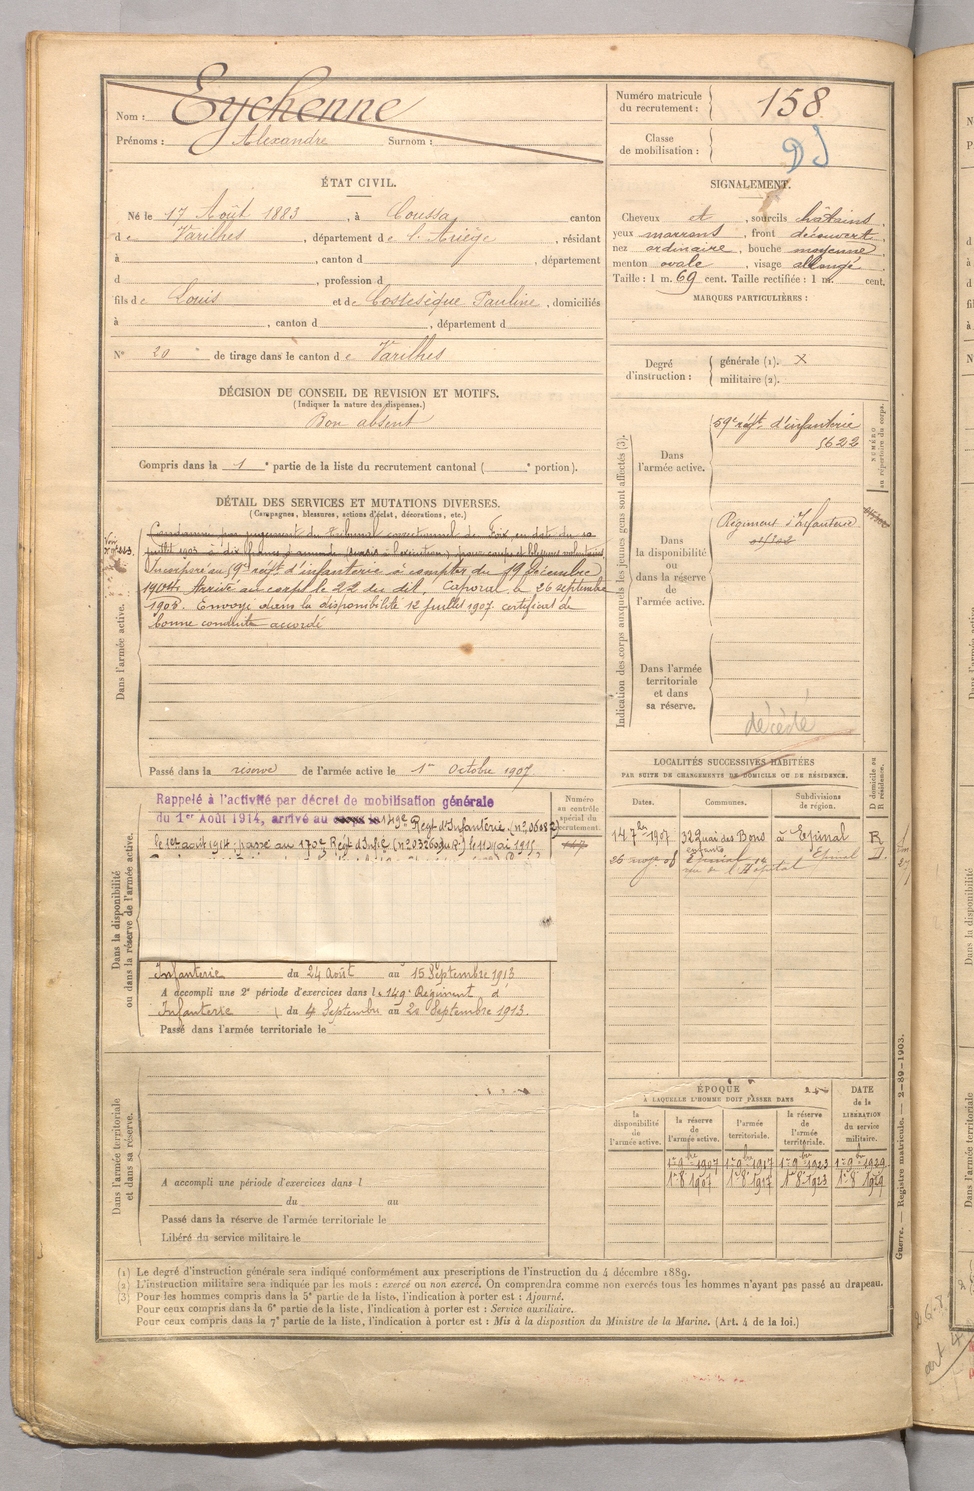 Nom : Eychenne
Prénoms : Alexandre Surnom :
ÉTAT CIVIL.
Né le 17 Août 1883, à Coussa, canton
de Varilhes, département de l'Ariège, résidant
à , canton d , département
d , profession d
fils de Louis et de Costesèque Pauline, domiciliés
à , canton d , département d
N° 20 de tirage dans le canton de Varilhes
DÉCISION DU CONSEIL DE REVISION ET MOTIFS.
(Indiquer la nature des dispenses.)
Bon absent
Compris dans la 1e partie de la liste du recrutement cantonal ( e portion).
DÉTAIL DES SERVICES ET MUTATIONS DIVERSES.
(Campagnes, blessures, actions d'éclat, décorations, etc.)
Dans l'armée active.
Condamné par jugement du Tribunal correctionnel de Foix en date du 10
juillet 1903 à dix francs d'amende (sursis à l'exécution) pour coups et blessures volontaires
Incorporé au 59e régt d'infanterie à compter du 19 Décembre
1904. Arrivé au corps le 22 du dit, Caporal le 26 septembre
1906. Envoyé dans la disponibilité 12 juillet 1907. certificat de
bonne conduite accordé
Passé dans la réserve de l'armée active le 1er Octobre 1907
Dans la disponibilité
ou dans la réserve de l'armée active.
Rappelé à l'activité par décret de mobilisation générale
du 1er Août 1914, arrivé au corps le 149e Régt d'Infanterie,
le 1er août 1914; passé au 170e Régt d'Infie le 11 Mai 1915
Infanterie du 24 Août au 15 Septembre 1913
A accompli une 2e période d'exercices dans le 149e Régiment d'
Infanterie du 4 Septembre au 20 Septembre 1913.
Passé dans l'armée territoriale le
Numéro
au contrôle
spécial du
recrutement.
Dans l'armée territoriale
et dans sa réserve.
A accompli une période d'exercices dans l
du au
Passé dans la réserve de l'armée territoriale le
Libéré du service militaire le
Numéro matricule
du recrutement : 158
Classe
de mobilisation :
DJ
SIGNALEMENT.
Cheveux et , sourcils châtains,
yeux marrons, front découvert,
nez ordinaire, bouche moyenne,
menton ovale, visage allongé.
Taille : 1 m. 69 cent. Taille rectifiée : 1 m. cent.
MARQUES PARTICULIÈRES :
Degré
d'instruction :
générale (1). X
militaire (2).
Indication des corps auxquels les jeunes gens sont affectés (3).
Dans
l'armée active.
59e régt. d'infanterie
5622
NUMÉRO
au répertoire du corps.
Dans
la disponibilité
ou
dans la réserve
de
l'armée active.
Régiment d'Infanterie
Dans l'armée
territoriale
et dans
sa réserve.
décédé
LOCALITÉS SUCCESSIVES HABITÉES
PAR SUITE DE CHANGEMENTS DE DOMICILE OU DE RÉSIDENCE.
D domicile ou
R résidence.
Dates. Communes. Subdivisions
de région.
14 7bre 1907 32 Quai des Bons enfants à Epinal R
Epinal 14 Epinal D
rue de l'Hôpital
ÉPOQUE
À LAQUELLE L'HOMME DOIT PASSER DANS
DATE
de la
LIBÉRATION
du service
militaire.
la
disponibilité
de
l'armée active.
la réserve
de
l'armée active.
l'armée
territoriale.
la réserve
de
l'armée
territoriale.
1er 9bre 1907 1er 9bre 1917 1er 9bre 1923 1er 9bre 1929
1er 8 1907 1er 8 1917 1er 8 1923 1er 8 1929
Guerre. — Registre matricule. — 2-89-1903.
(1) Le degré d'instruction générale sera indiqué conformément aux prescriptions de l'instruction du 4 décembre 1889.
(2) L'instruction militaire sera indiquée par les mots : exercé ou non exercé. On comprendra comme non exercés tous les hommes n'ayant pas passé au drapeau.
(3) Pour les hommes compris dans la 5e partie de la liste, l'indication à porter est : Ajourné.
Pour ceux compris dans la 6e partie de la liste, l'indication à porter est : Service auxiliaire.
Pour ceux compris dans la 7e partie de la liste, l'indication à porter est : Mis à la disposition du Ministre de la Marine. (Art. 4 de la loi.)